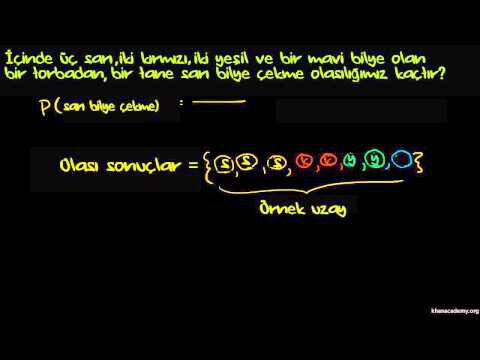 İçinde üç sarı, iki kırmızı, iki yeşil ve bir mavi bilye olan
bir torbadan, bir tane sarı bilye çekme olasılığımız kaçtır?
P(sarı bilye çekme) =
Olası sonuçlar = {S, S, S, K, K, Y, Y, }
Örnek uzay
khanacademy.org